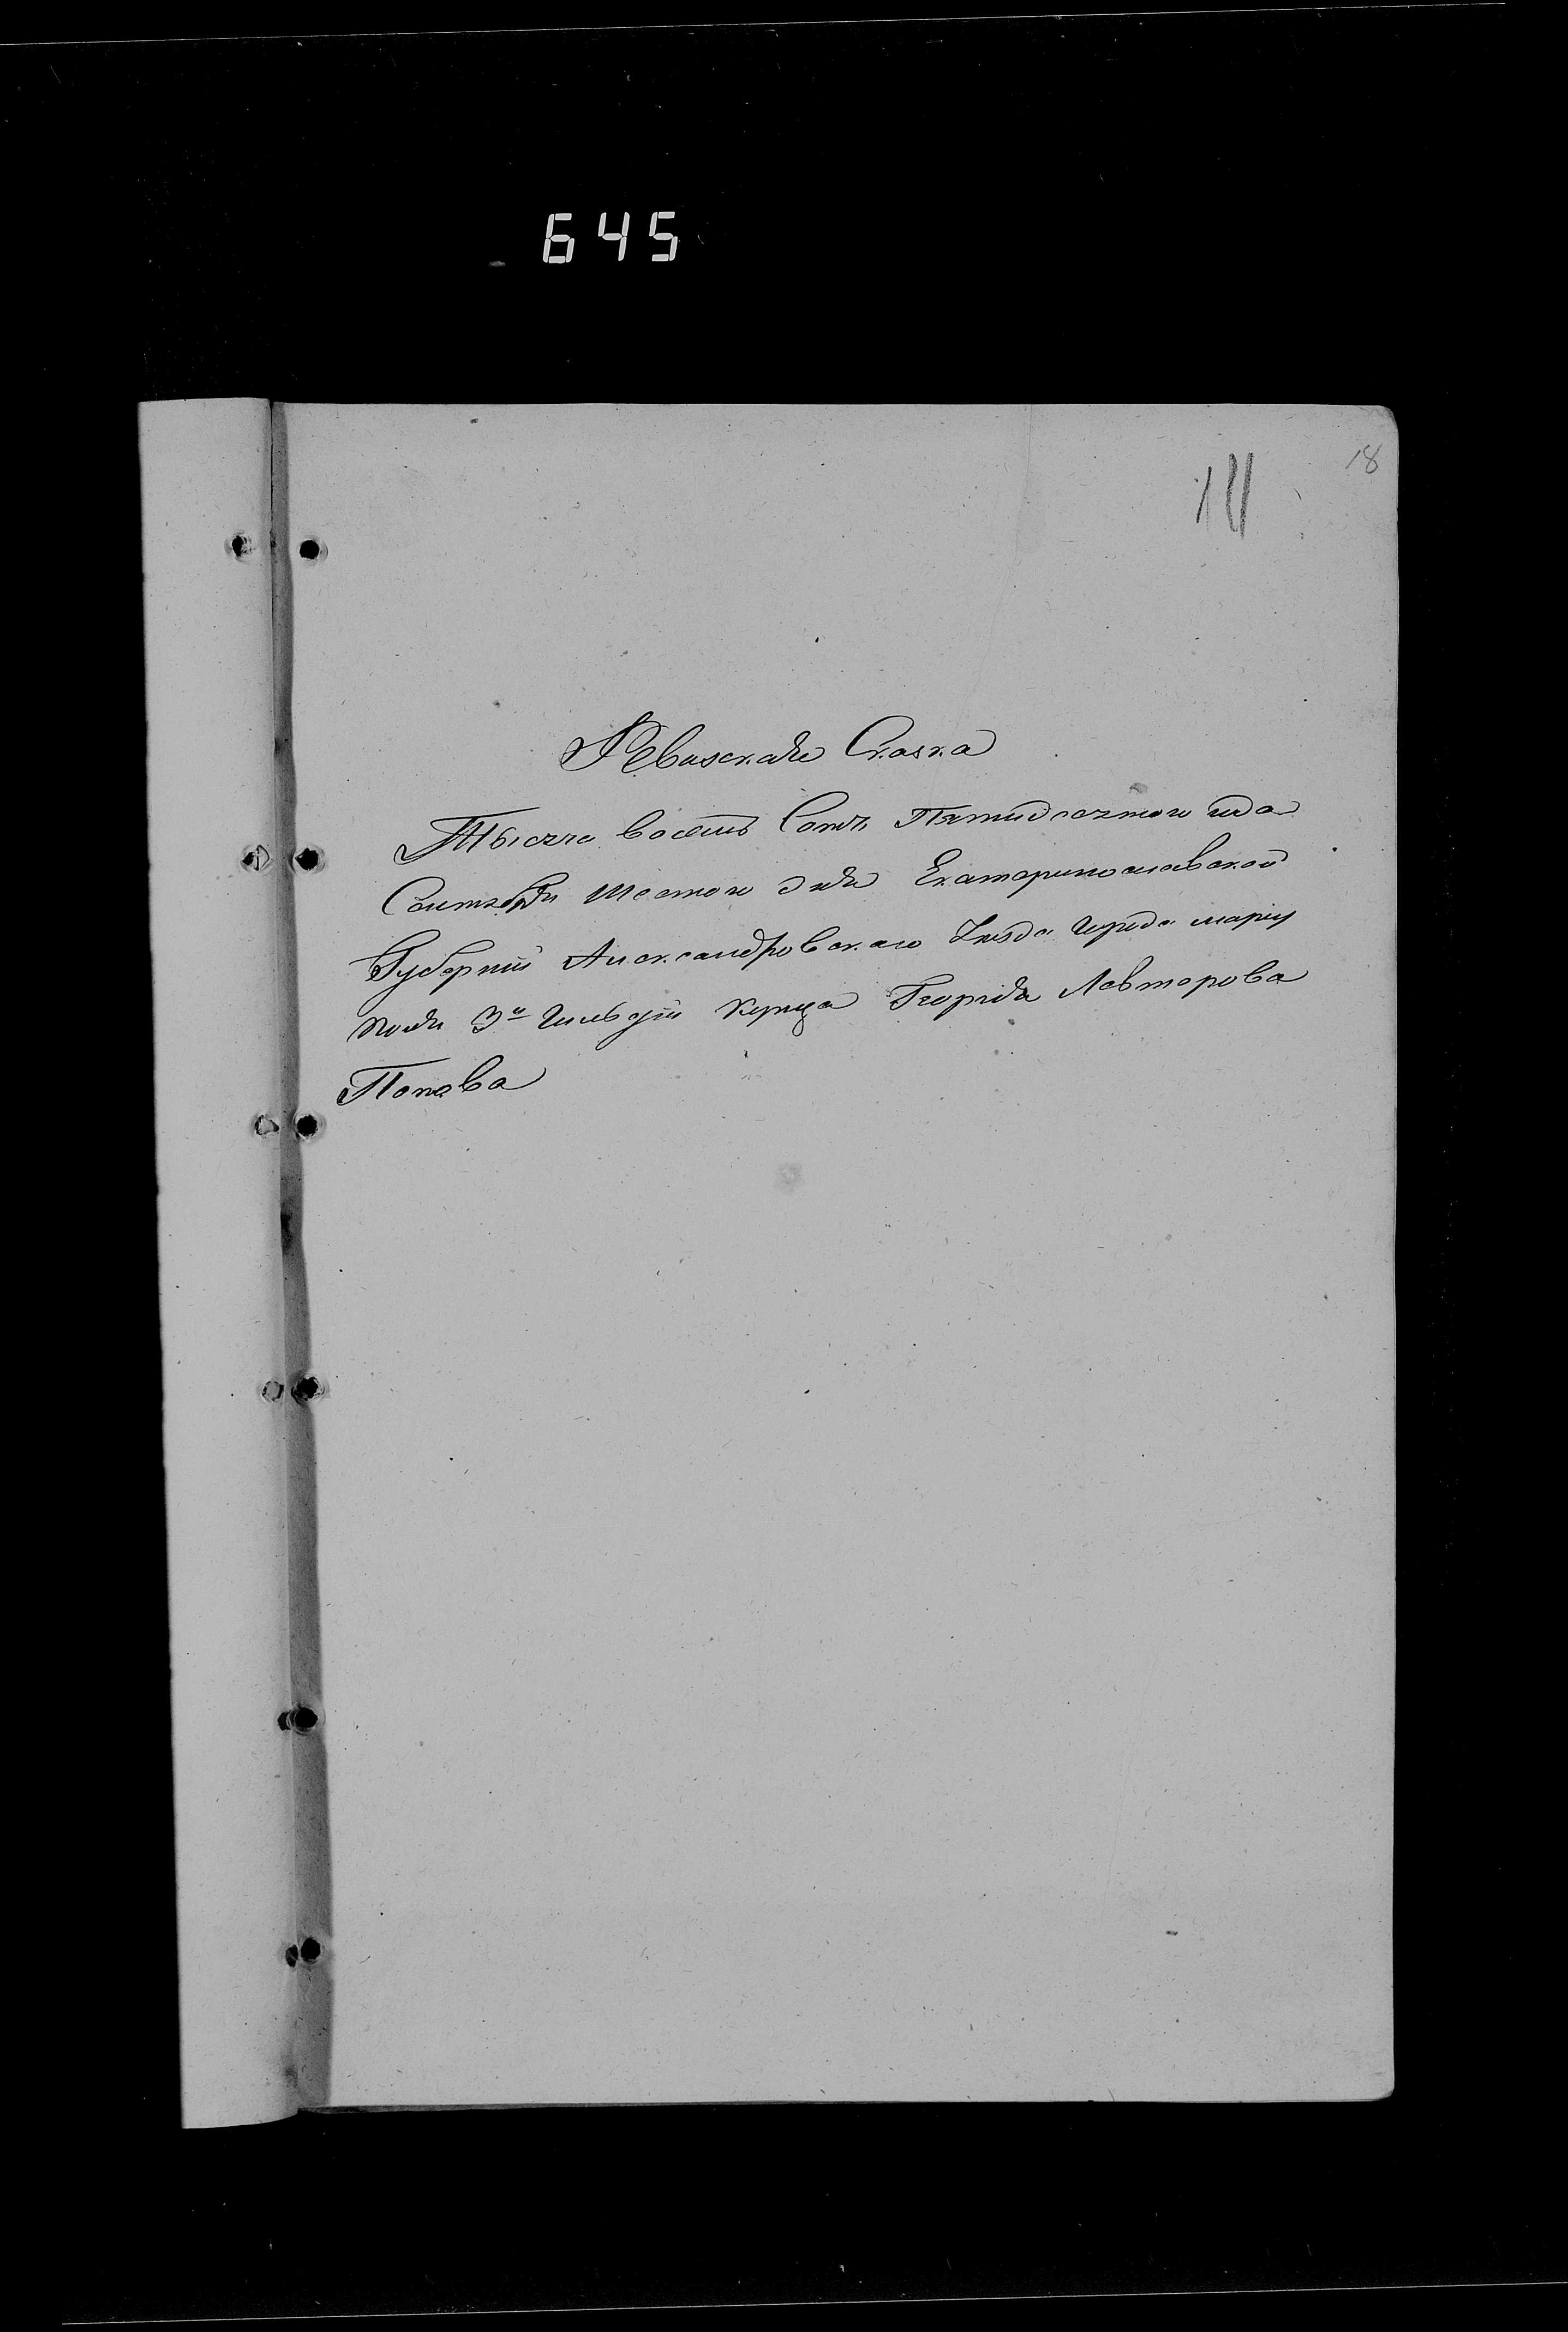 645
18
Ревизская Сказка
Тысяча восемь Сотъ Пятидесятого года
Сентября Шестого дня Екатеринославской
Губернии Александровского Уезда Города мариу
поля 3й Гильдии Купца Георгия Левтерова
Попова